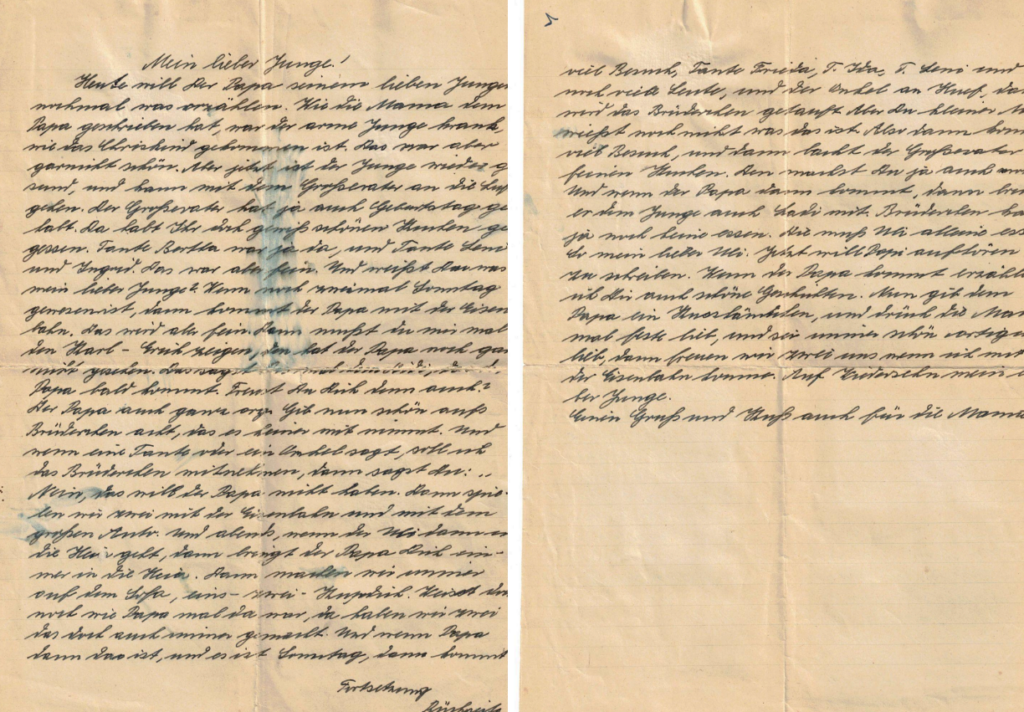 Mein lieber Junge!
Heute will der Papa seinem lieben Jungen
nochmal was erzählen. Wie die Mama dem
Papa geschrieben hat, war der arme Junge krank,
wie das Christkind gekommen ist. Das war aber
garnicht schön. Aber jetzt ist der Junge wieder g
sund, und kann mit dem Großvater an die Luft
gehen. Der Großvater hat ja auch Geburtstag ge
habt. Da habt Ihr doch gewiß schönen Kuchen ge
gessen. Tante Berta war ja da, und Tante Leni
und Ingrid. Das war aber fein. Und weißt Du was
mein lieber Junge? Wenn noch zweimal Sonntag
gewesen ist, dann kommt der Papa mit der Eisen
bahn. Das wird aber fein. Dann mußt du mir mal
den Karl-Erich zeigen, den hat der Papa noch gar
nicht gesehen. Das sagst
Papa bald kommt. Freust Du Dich denn auch?
Der Papa auch ganz arg. Gib nun schön aufs
Brüderchen acht, das es keiner mit nimmt. Und
wenn eine Tante oder ein Onkel sagt, soll ich
das Brüderchen mitnehmen, dann sagst Du: „
Nein, das will der Papa nicht haben. Dann spie-
len wir zwei mit der Eisenbahn und mit dem
großen Auto. Und abends, wenn der Uli dann in
die Heia geht, dann bringt der Papa Dich im-
mer in die Heia. Dann machen wir immer
auf dem Sofa, eins-zwei- Weißt du
noch wie Papa mal da war, da haben wir zwei
das doch auch immer gemacht. Und wenn Papa
dann da ist, und es ist Sonntag, dann kommt
Fortsetzung
Rückseite
viel Besuch, Tante Frieda, T. Ida, T. Leni und
noch viele Leute, und der Onkel an
wird das Brüderchen getauft. Aber Du kleiner
weißt noch nicht was das ist. Also dann kom
viel Besuch, und dann backt der Großvater
feinen Kuchen. Den machst Du ja auch
Und wenn der Papa dann kommt, dann brin
er dem Junge auch mit. Brüderchen ka
ja noch keine essen. Die muß Uli alleine ess
So mein lieber Uli. Jetzt will Papi aufhören
zu schreiben. Wenn der Papa kommt erzähl
ich Dir auch schöne Geschichten. Nun gib dem
Papa ein und drück die Mam
mal feste lieb, und sei immer schön
lieb, dann freuen wir zwei uns wenn ich mit
der Eisenbahn komme. Auf Wiedersehn mein
ber Junge.
Einen Gruß und Kuß auch für die Mama